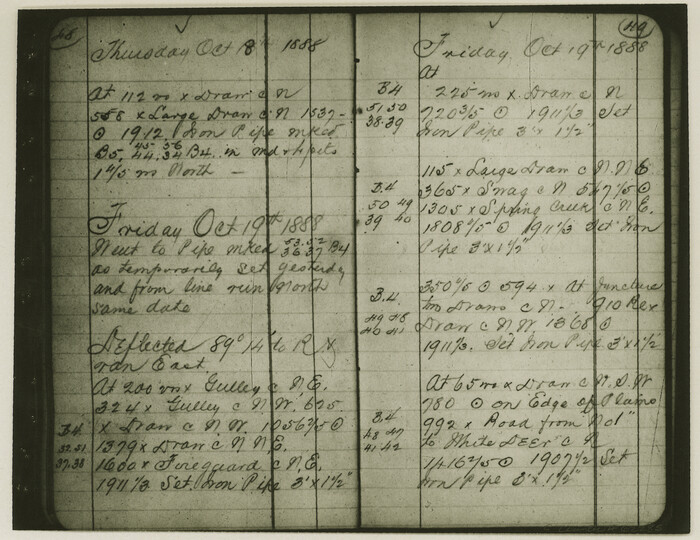 48
Thursday Oct 18th 1888
At 112 vrs x Draw c N
558 x Large Draw c N 1537-
⊙ 1912 Iron Pipe mked
B5, 44.34 B4. in md rh pits
1 4/5 vrs North —
Friday Oct 19th 1888
Went to Pipe mked 53.52 36.37 B4
as temporarily set yesterday
and from line run North
same date
Deflected 89° 14' to R x
ran East
At 200 vrs x Gulley c N.E.
324 x Gulley c N.W. 625
x Draw c N.W. 1056 2/5 ⊙
B4
1379 x Draw c N N.E.
37.38
1600 x Fireguard c N.E.
1911 1/3 Set Iron Pipe 3' x 1 1/2"
49
Friday Oct 19th 1888
At
B.4
225 vrs x Draw c N
51.50
720 3/5 ⊙ 1911 1/3 Set
38.39
Iron Pipe 3' x 1 1/2"
115 x Large Draw c N.N.E
B.4
365 x Swag c N 547 1/5 ⊙
50 49
1305 x Spring Creek c N.E.
39 40
1808 2/5 ⊙ 1911 1/3 Set Iron
Pipe 3' x 1 1/2"
350 4/5 ⊙ 594 x At Juncture
B.4.
two Draws c N- 910 Rex
49 48
Draw c N.W. 1368 ⊙
40 41
1911 1/3. Set Iron Pipe 3' x 1 1/2
At 65 vrs x Draw c N.S.W
780 ⊙ on Edge of Plains
B.4
992 x Road from "Mol"
48 47
to White DEER c N
41 42
1416 2/5 ⊙ 1907 1/2 Set
Iron Pipe 3' x 1 1/2"